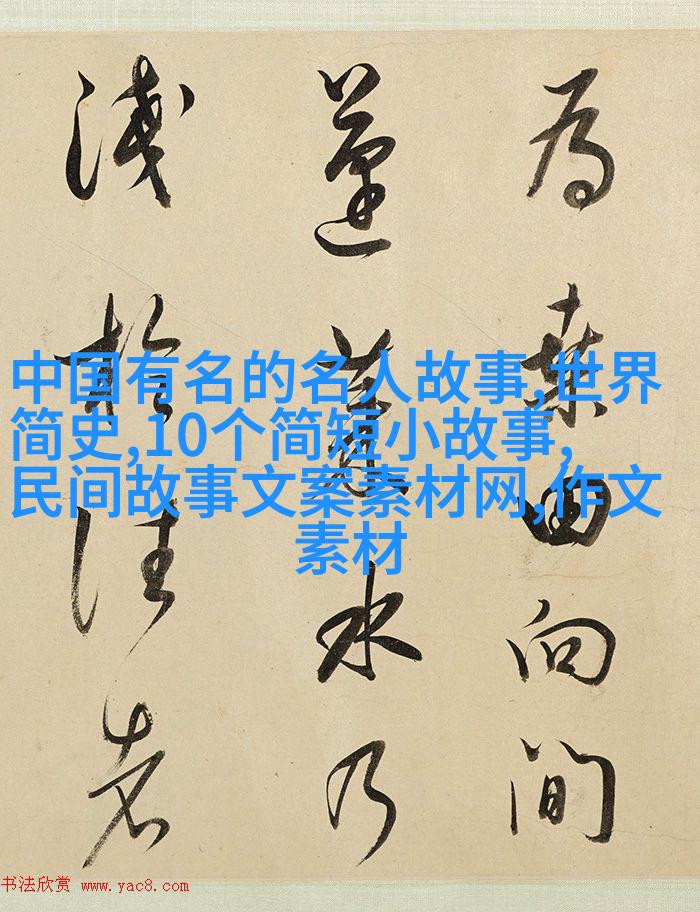 為桑田向間
蓬萊水乃
淺於往者
中国有名的名人故事,世界
简史,10个简短小故事,
民间故事文案素材网,作文
素材
书法欣赏 www.yac8.com